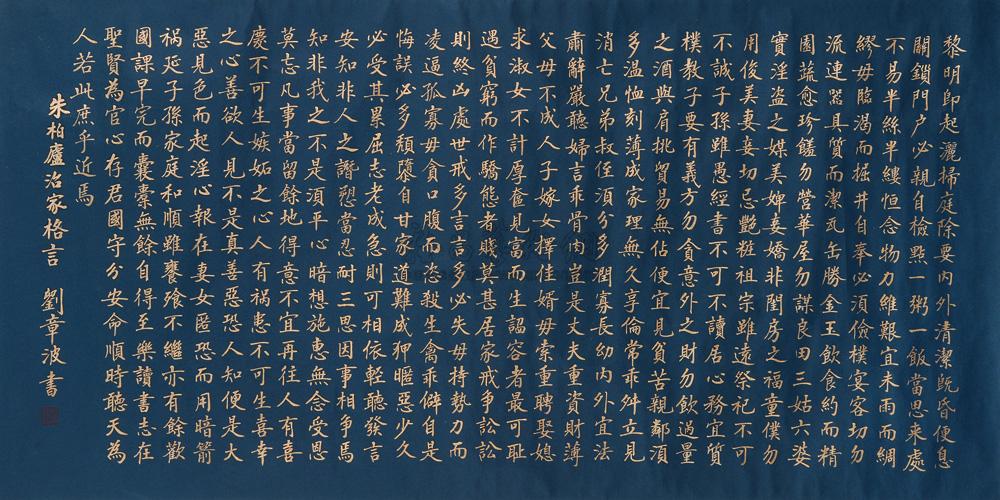 黎明即起灑掃庭除要內外清潔既昏便息
關鎖門戶必親自檢點一粥一飯當思来處
不易半絲半縷恒念物力維艱宜未雨而綢
繆毋臨渴而掘井自奉必須儉樸宴客切勿
流連器具質而潔瓦缶勝金玉飲食約而精
園蔬愈珍饈勿營華屋勿謀良田三姑六婆
實淫盜之媒美婢妾嬌非閨房之福童僕勿
用俊美妻妾切忌艷粧祖宗雖遠祭祀不可
不誠子孫雖愚經書不可不讀居心務宜質
樸教子要有義方勿貪意外之財勿飲過量
之酒與肩挑貿易無佔便宜見貧苦親鄰須
多溫恤刻薄成家理無久享倫常乖舛立見
消亡兄弟叔侄須分多潤寡長幼內外宜法
肅辭嚴聽婦言乖骨肉豈是丈夫重資財薄
父母不成人子嫁女擇佳婿毋索重聘娶媳
求淑女不計厚奩見富而生謟容者最可耻
遇貧窮而作驕態者賤莫甚居家戒争訟訟
則終凶處世戒多言言多必失毋持勢力而
凌逼孤寡毋貪口腹而恣殺生禽乖僻自是
悔誤必多頹墮自甘家道難成狎暱惡少久
必受其累屈志老成急則可相依輕聽發言
安知非人之譖愬當忍耐三思因事相争焉
知非我之不是須平心暗想施惠無念受恩
莫忘凡事當留餘地得意不宜再往人有喜
慶不可生嫉妬之心人有禍患不可生喜幸
之心善欲人見不是真善惡恐人知便是大
惡見色而起淫心報在妻女匿恐而用暗箭
禍延子孫家庭和順雖饔飧不繼亦有餘歡
國課早完而囊橐無餘自得至樂讀書志在
聖賢為官心存君國守分安命順時聽天為
人若此庶乎近焉
朱柏廬治家格言 劉章波書